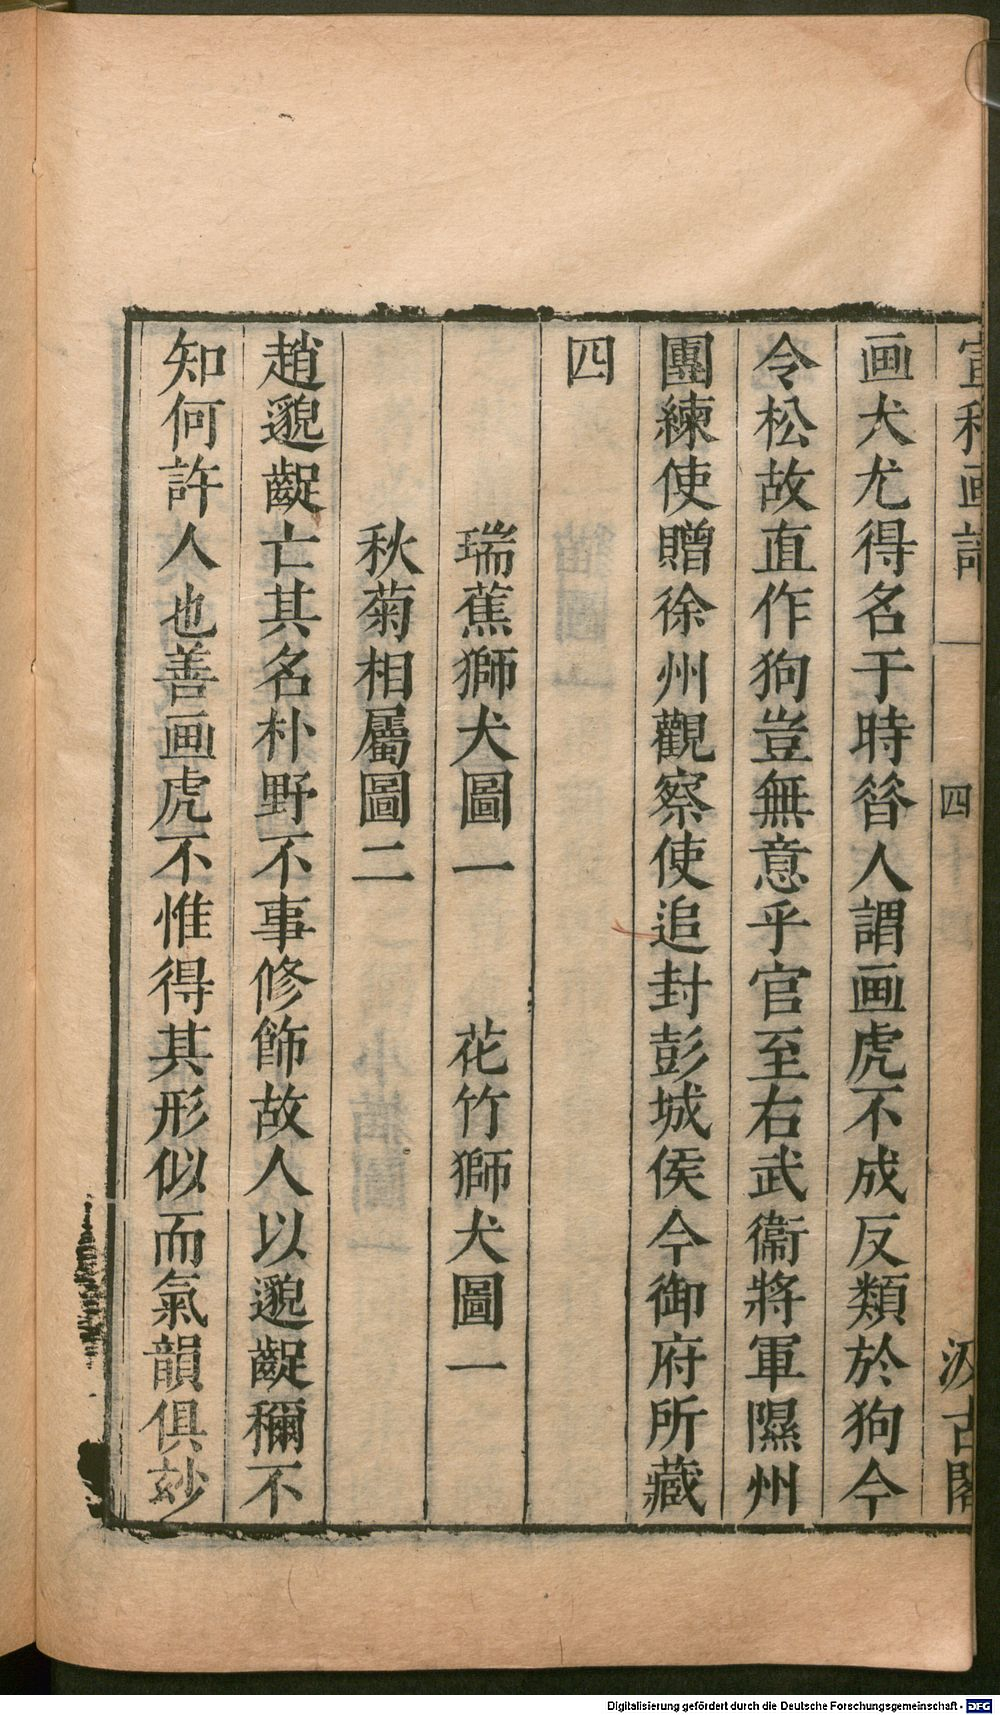 宣和画譜 四 汲古閣
画犬尤得名于時昝人謂画虎不成反類於狗今
令松故直作狗豈無意乎官至右武衞將軍隰州
團練使贈徐州觀察使追封彭城侯今御府所藏
四
瑞蕉獅犬圖一 花竹獅犬圖一
秋菊相屬圖二
趙邈齪亡其名朴野不事修飾故人以邈齪穪不
知何許人也善画虎不惟得其形似而氣韻俱玅
Digitalisierung gefördert durch die Deutsche Forschungsgemeinschaft - DFG